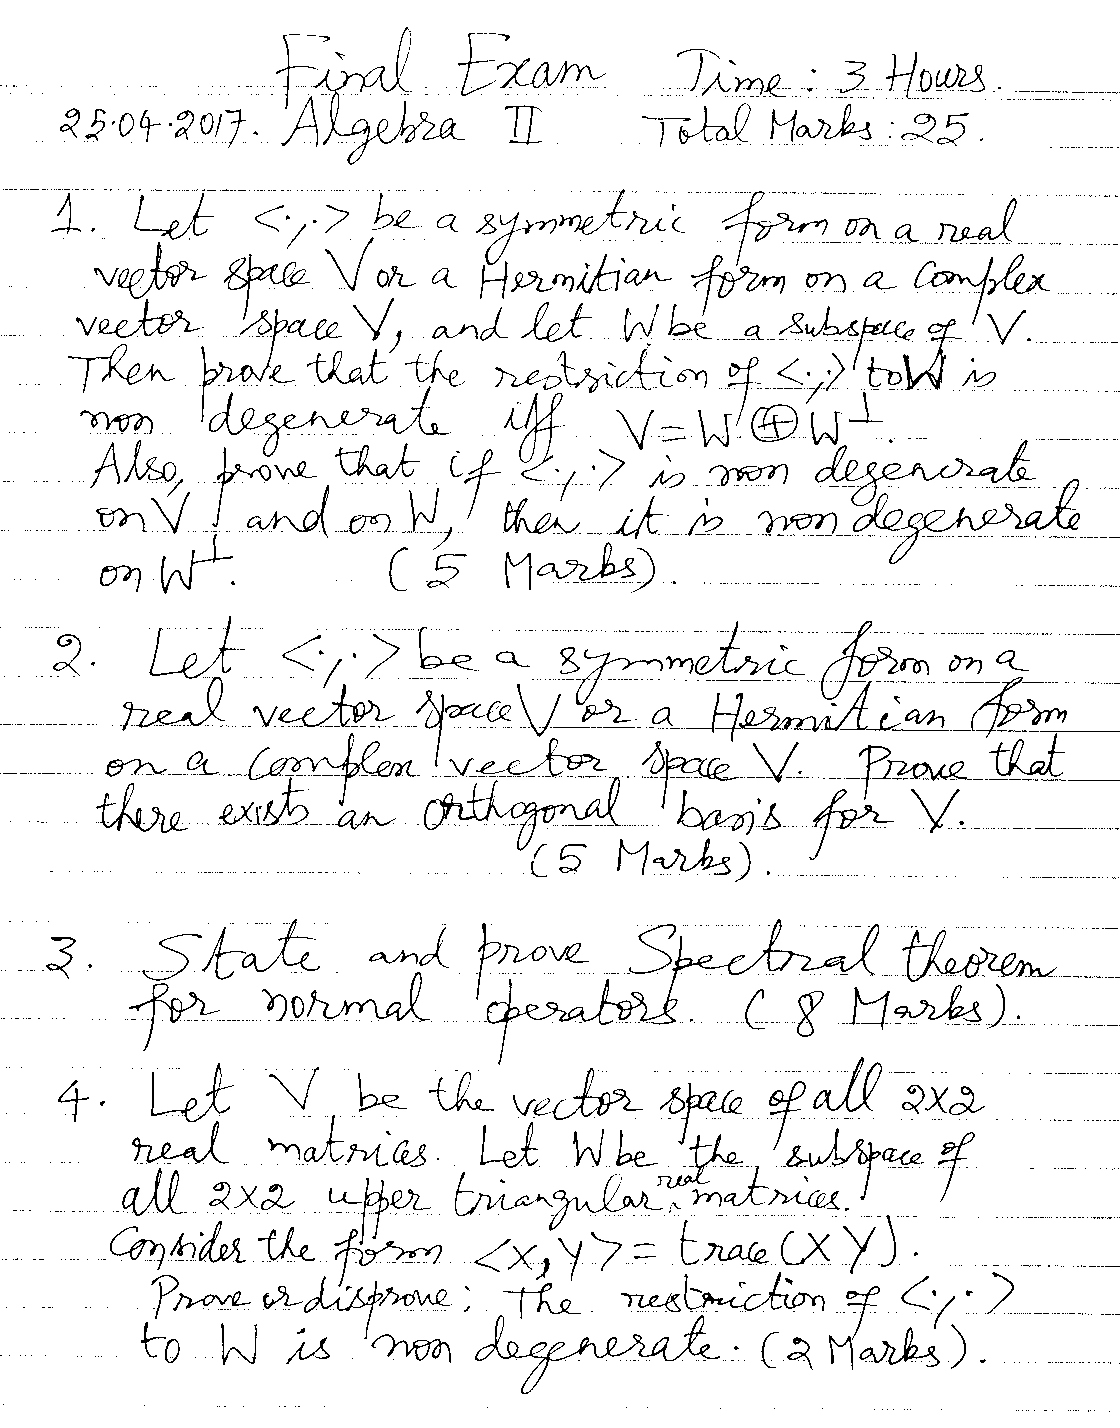 Final Exam Time : 3 Hours.
25.04.2017. Algebra II Total Marks : 25.
1. Let <.,.> be a symmetric form on a real
vector space V or a Hermitian form on a complex
vector space V, and let W be a subspace of V.
Then prove that the restriction of <.,.> to W is
non degenerate iff V = W ⊕ W⊥.
Also, prove that if <.,.> is non degenerate
on V and on W, then it is non degenerate
on W⊥. (5 Marks).
2. Let <.,.> be a symmetric form on a
real vector space V or a Hermitian form
on a complex vector space V. Prove that
there exists an orthogonal basis for V.
(5 Marks).
3. State and prove Spectral theorem
for normal operators. (8 Marks).
4. Let V be the vector space of all 2x2
real matrices. Let W be the subspace of
all 2x2 upper triangular real matrices.
Consider the form <X, Y> = trace (X Y).
Prove or disprove: The restriction of <.,.>
to W is non degenerate. (2 Marks).